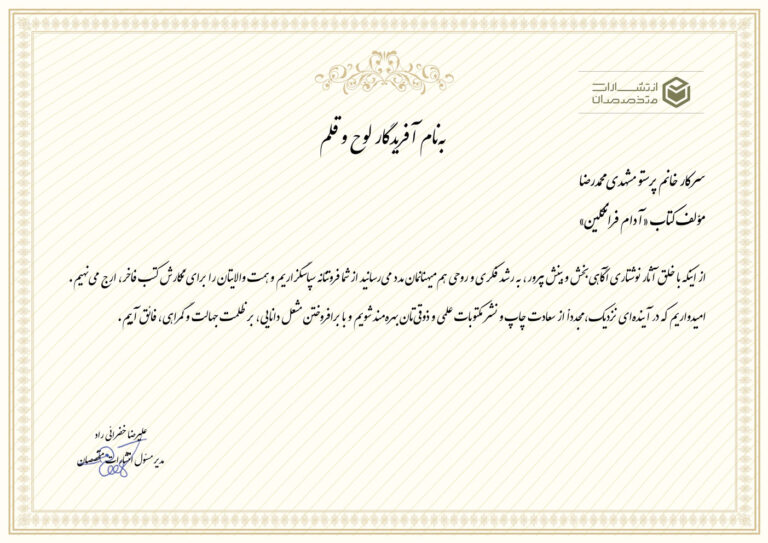 انتشارات
متخصصان
به‌نام آفریدگار لوح و قلم
سرکار خانم پرستو مشهدی محمدرضا
مؤلف کتاب «آدام فرانکلین»
از اینکه با خلق آثار نوشتاری آگاهی بخش و بینش پرور، به رشد فکری و روحی هم میهنانمان مدد می‌رسانید از شما فروتنانه سپاسگزاریم و همت والایتان را برای نگارش کتب فاخر، ارج می‌نهیم.
امیدواریم که در آینده‌ای نزدیک، مجدداً از سعادت چاپ و نشر مکتوبات علمی و ذوقی‌تان بهره‌مند شویم و با برافروختن مشعل دانایی، بر ظلمت جهالت و گمراهی، فائق آییم.
علیرضا خضرائی راد
مدیر مسئول انتشارات متخصصان